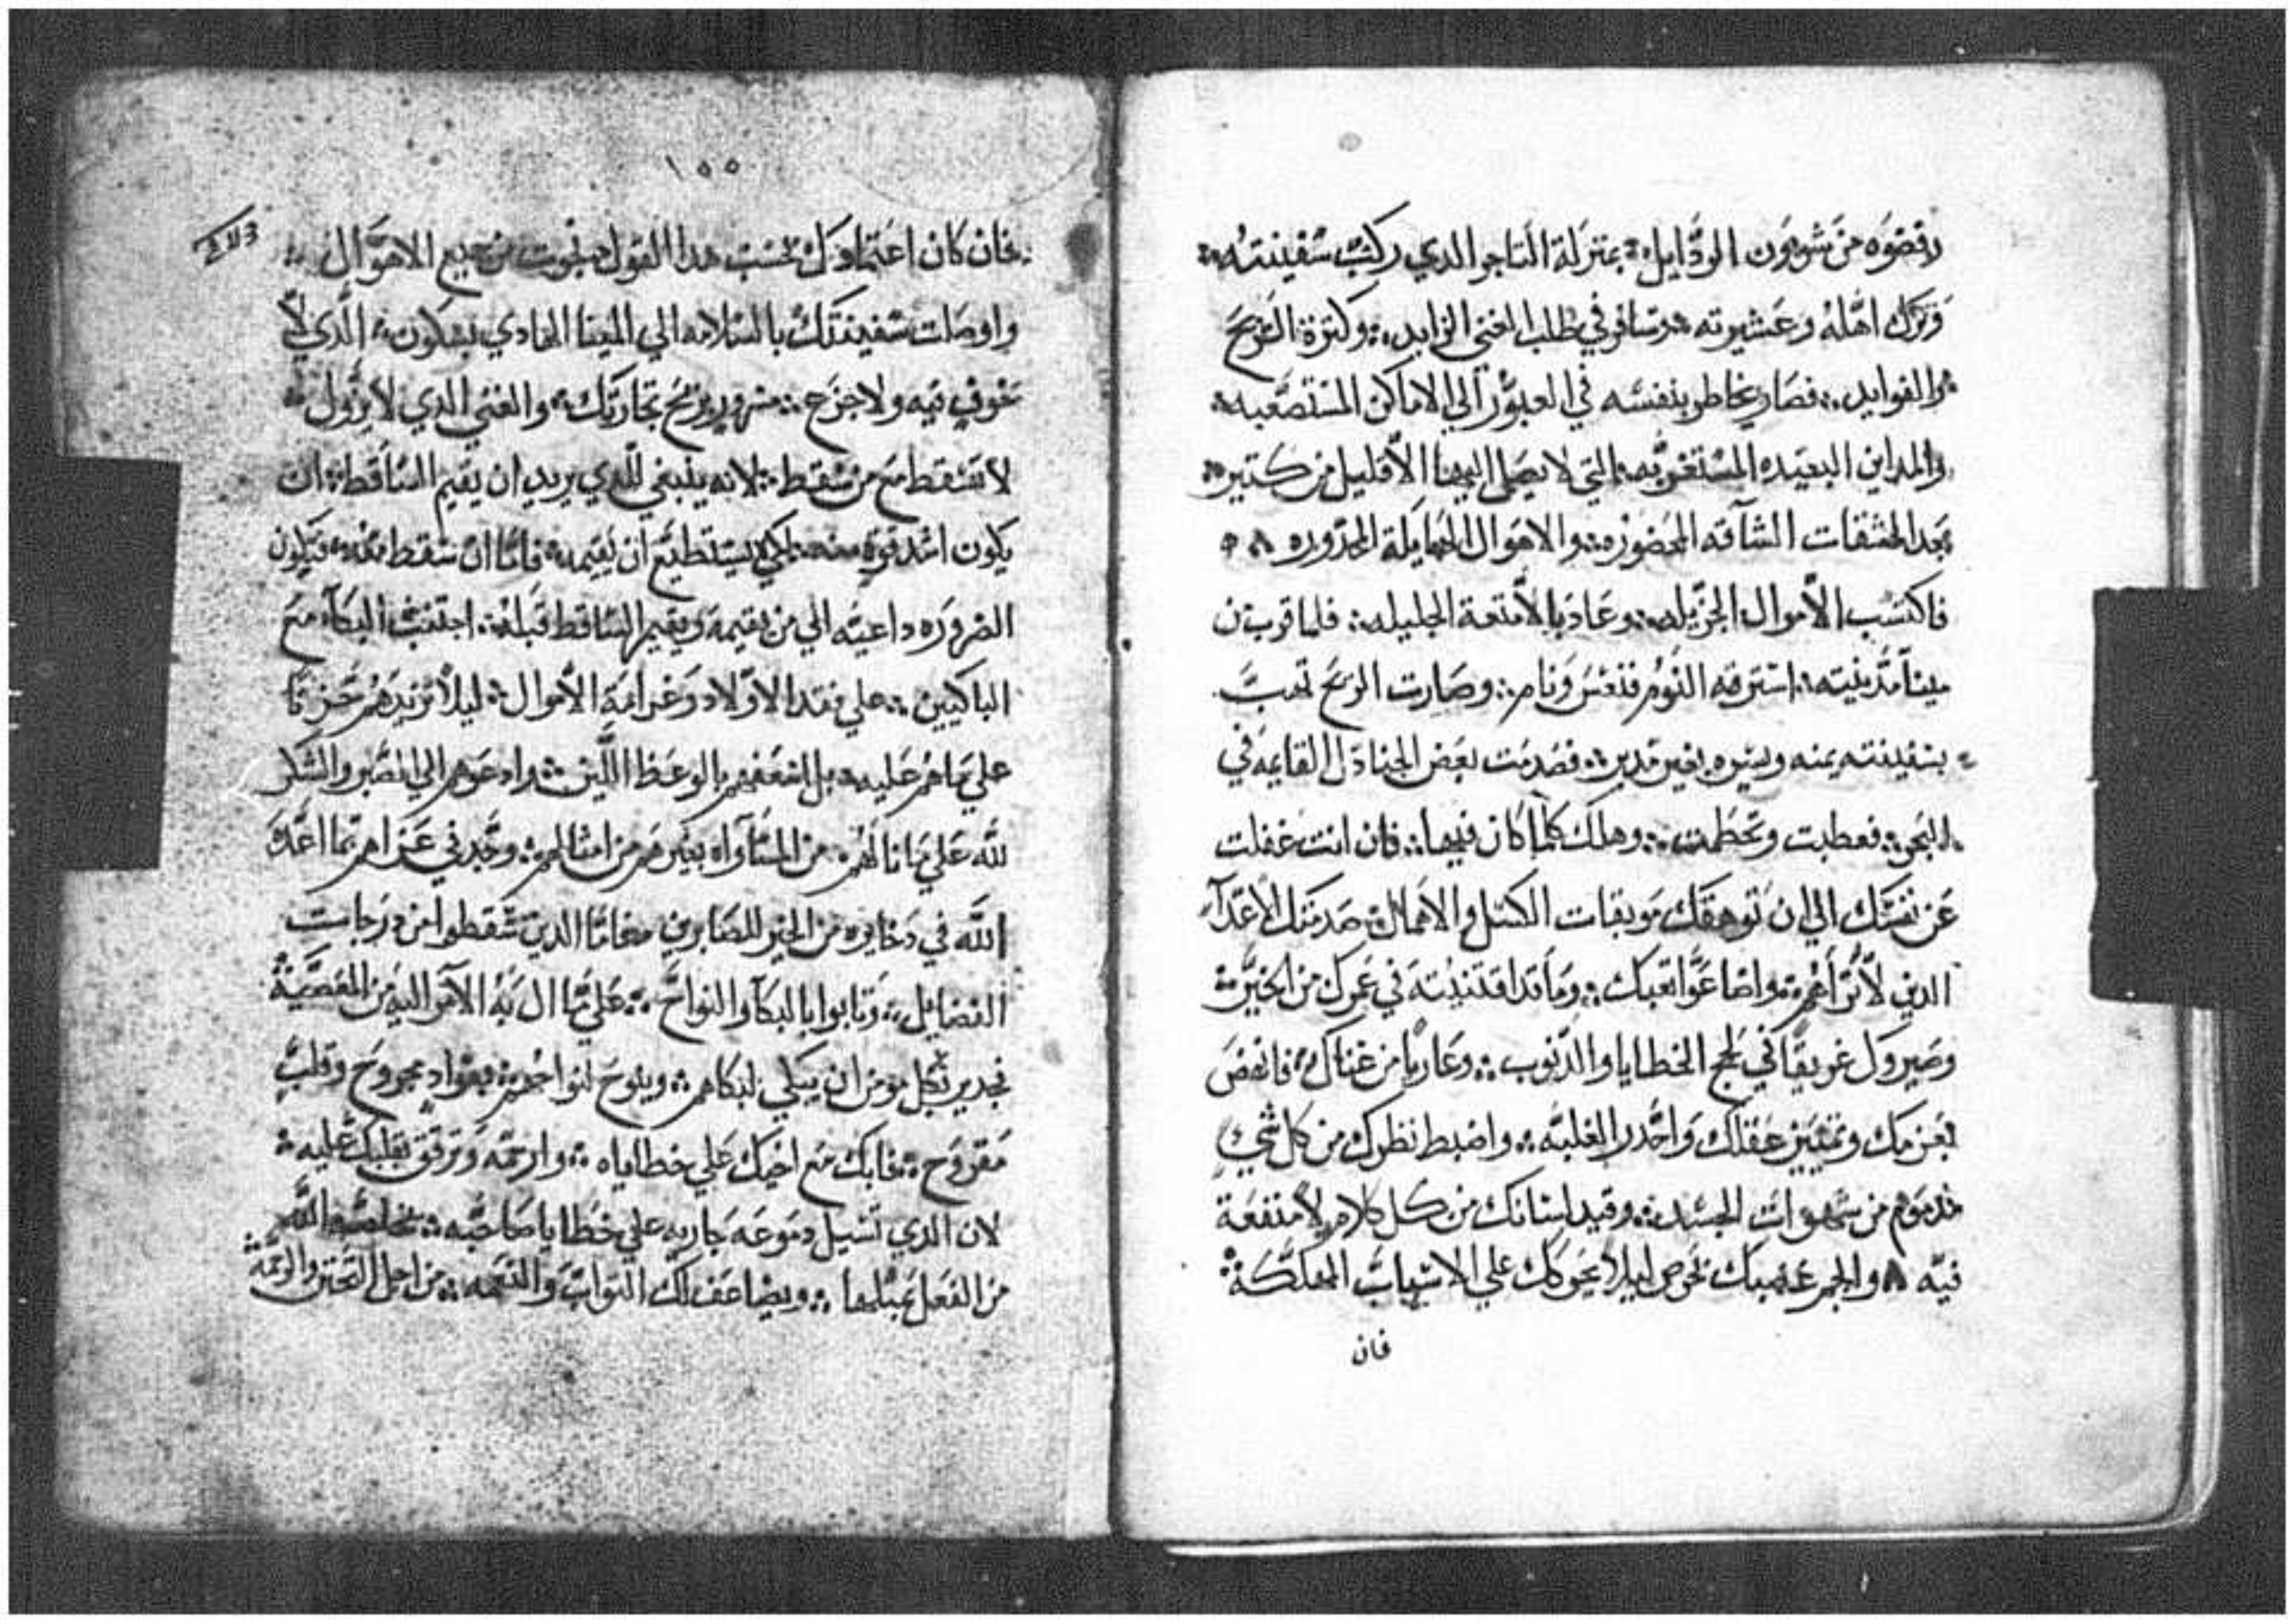 رفضوه من شوون الردايل بمنزلة التاجر الدي ركب سفينته
وترك اهله وعشيرته وسافر في طلب الغني الزايد وكترة الربح
والفوايد فصار يخاطر بنفسه في العبور الي الاماكن المستصعبه
والمداين البعيده المستغربه التي لا يصل اليها الا قليل من كتير
بعد المشقات الشاقه المحضوره والاهوال الهايلة المحدوره
فاكتسب الاموال الجزيله وعاد بالامتعة الجليله فلما قرب من
مينا مدينته استرقه النوم فنعس ونام وصارت الريح تهب
بسفينته يمنه ويسره بغير مدبر فصدمت بعض الجنادل القايمه في
البحر فعطبت وتحطمت وهلك كلما كان فيها فان انت غفلت
عن نفسك الي ان توهقك موبقات الكسل والاهمال صدمتك الاعدآ
الدين لا تراهم واضاعوا تعبك وما قد اقتنيته في عمرك من الخير
وصيروك غريقا في لجج الخطايا والدنوب وعاريا من غناك فانهض
بعزمك وتمييز عقلك واحدر الغلبه واضبط نظرك من كل شي
مدموم من شهوات الجسد وقيد لسانك من كل كلام لا منفعة
فيه والجم غضبك بحرص ليلا يحركك علي الاسباب المهلكة
فان
١٥٥
فان كان اعتمادك بحسب هدا القول نجوت من جميع الاهوال
واوصلت سفينتك بالسلامه الي المينا الهادي بسكون الدي لا
خوف فيه ولا جزع مسرور بربح تجارتك والغني الدي لا يزول
لا تسقط مع من سقط لانه ينبغي للدي يريد ان يقيم الساقط ان
يكون اشد قوة منه لكي يستطيع ان يقيمه فاما ان سقط معه فتكون
الضروره داعيه الي من يقيمه ويقيم الساقط قبله اجتنب البكآ مع
الباكيين علي فقد الاولاد وغرامة الاموال ليلا تزيدهم حزنا
علي ما هم عليه بل اسعفهم بالوعظ اللين وادعوهم الي الصبر والشكر
لله علي ما نالهم من المساواه بغيرهم من امثالهم وجد في عزاهم بما اعده
الله في دخايره من الخير للصابرين فاما الدين سقطوا من درجات
الفضايل وتابوا بالبكآ والنواح علي ما ال به الامر اليه من المعصية
فجدير بكل مومن ان يبكي لبكاهم وينوح لنواحهم بفواد مجروح وقلب
مقروح فابك مع اخيك علي خطاياه وارحمه وترفق بقلبك عليه
لان الدي تسيل دموعه جاريه علي خطايا صاحبه يخلصه الله
من الفعل بمتلها ويضاعف لك التواب والنعمه من اجل التحنن والرحمة